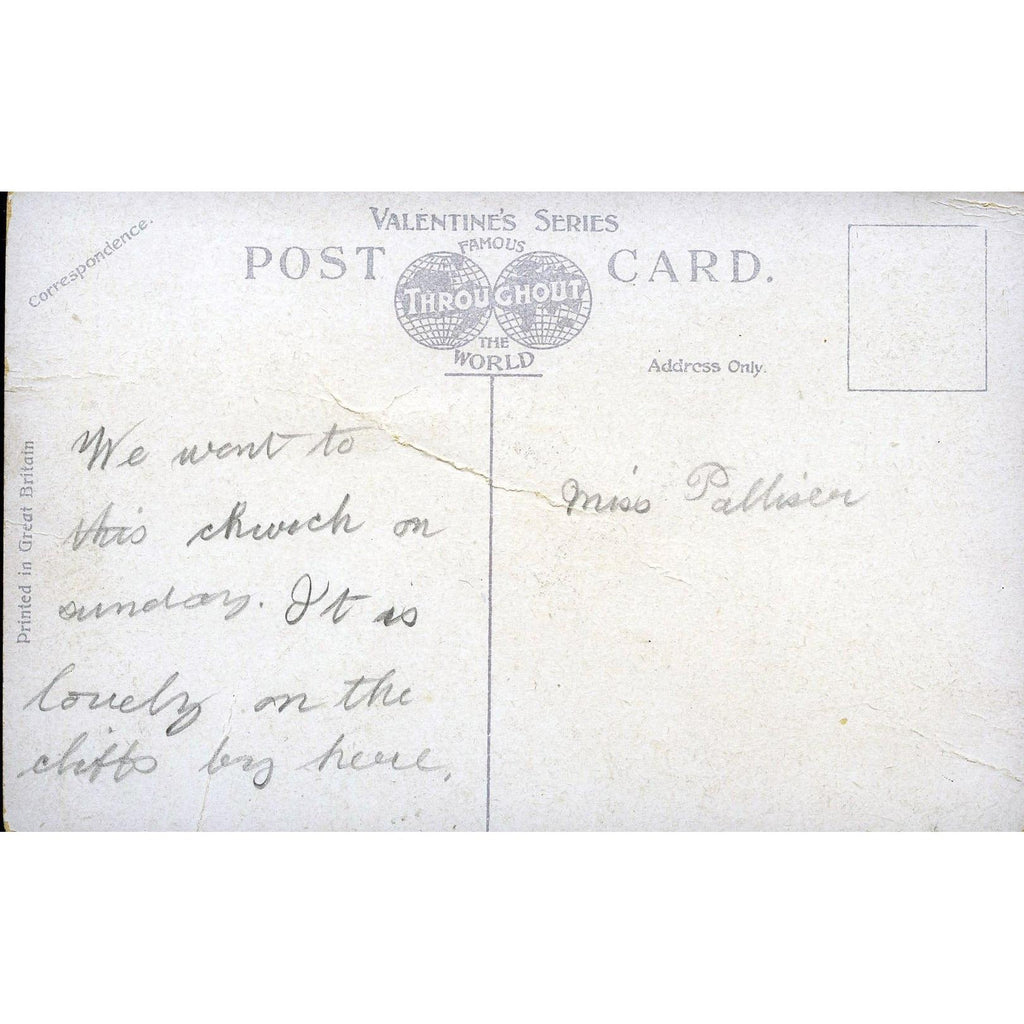 Correspondence.
VALENTINE'S SERIES
POST CARD.
FAMOUS
THROUGHOUT
THE
WORLD
Address Only.
Printed in Great Britain
We went to
this church on
sunday. It is
lovely on the
cliffs by here.
Miss Palliser